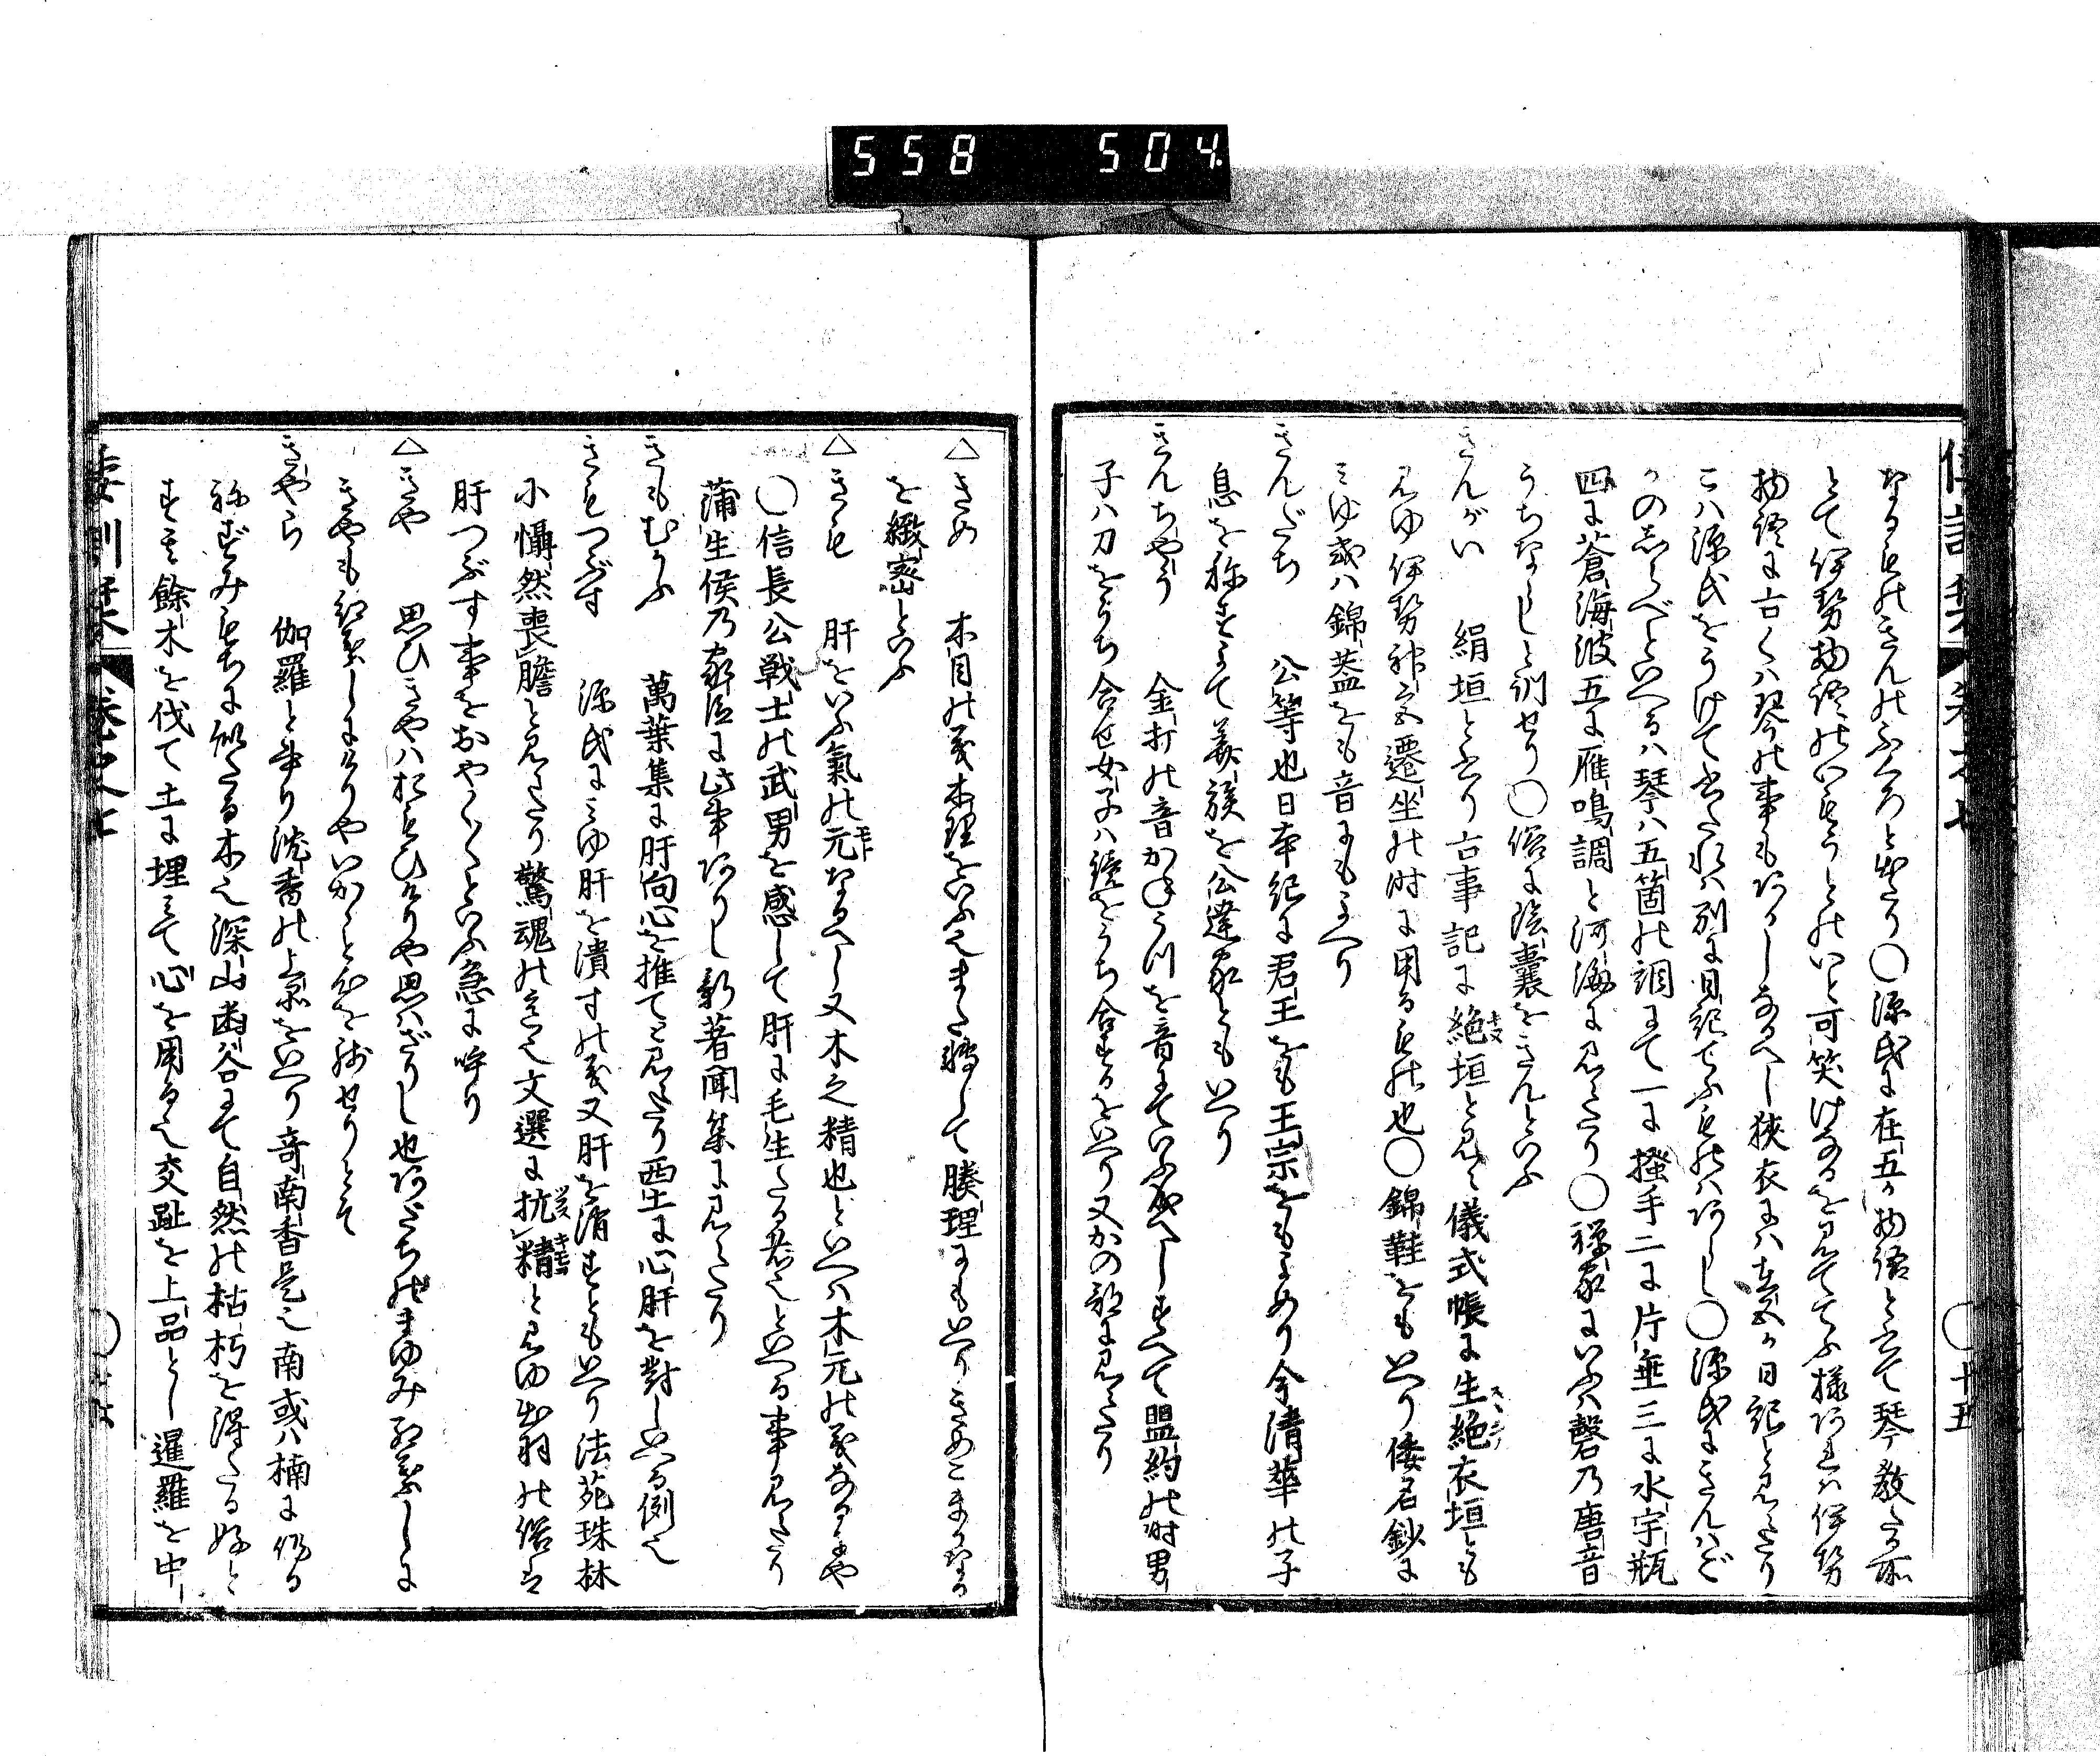 558 504
なるものきんのふくろと出たり〇源氏に在五か物語と云て琴教たる所
とて伊勢物語のいもうとのいと可笑けなるを見ててふ様あれは伊勢
物語に古くハ琴の事もありしなるへし狭衣にハ在五か日記と見えたり
こハ源氏をうけて書たれハ別に日記てふものハあらし〇源氏にきんハご
かのしらべといへるハ琴ハ五箇の調にて一に掻手二に片垂三に水宇瓶
四に蒼海波五に雁鳴調と河海に見えたり〇禅家にいふハ磬乃唐音
うちならしと訓せり〇俗に陰嚢をきんといふ
きんがい 絹垣と云り古事記に絶垣と見え儀式帳に生絶衣垣とも
見ゆ伊勢神宮遷坐の時に用るもの也〇錦鞋をもいへり倭名鈔に
みゆ或ハ錦蓋をも音にもよへり
きんだち 公等也日本紀に君王をも王宗をもよめり今清華の子
息を称するて兼族を公達家ともいへり
きんちやう 金打の音かねうつを音にていふ成へしすへて盟約の時男
子ハ刀をうち合せ女子ハ鏡をうち合するをいへり又かの部に見えたり
十五
△きめ 木目の義木理をいふ也また転して腠理にもいへりきめこまかなる
を緻密といふ
△きも 肝をいふ氣の元なるへし又木之精也といへハ木元の義なるにや
〇信長公戦士の武男を感して肝に毛生たる者也といへる事見えたり
蒲生侯乃家臣に此事ありし新著聞集に見えたり
きもむかふ 萬葉集に肝向心を推てと見えたり西土に心肝を對しいへる例也
きもつぶす 源氏にみゆ肝を潰すの義又肝を消すともいへり法苑珠林
小懾然喪膽と見えたり驚魂の意也文選に抗精と見ゆ出羽の俗は
肝つぶす事をおやくくといふ急に呼り
△きや 思ひきやハおもひけりや思ハざりし也あだちのまゆみ紅葉しに
きやも紅葉しにけりやいかにと心を残せりとそ
きやら 伽羅と書り沈香の上品をいへり奇南香是也南或ハ楠に作る
ねずみもちに似たる木也深山幽谷にて自然の枯朽を得たる好と
すと餘木を伐て土に埋ミて心を用るハ交趾を上品とし暹羅を中
倭訓栞 巻之七